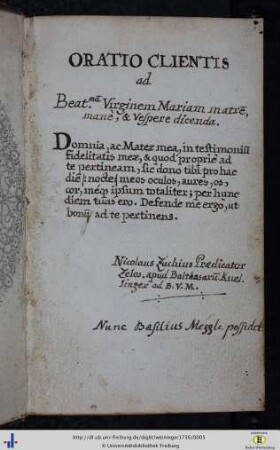 ORATIO CLIENTIS
ad
Beat.mã Virginem Mariam matrẽ,
manè, & Vespere dicenda.
Domina, ac Mater mea, in testimoniũ
fidelitatis meæ, & quod propriè ad
te pertineam, sic dono tibi pro hac
diẽ: nocte: meos oculos, aures, os,
cor, meq; ipsum totaliter; per hunc
diem tuus ero. Defende me ergo, ut
bonũ ad te pertinens.
Nicolaus Zuchius Prædicator
Zelos. apud Balthasarũ Knel-
linger ad B. V. M.
Nunc Basilius Meggle possidet
http://dl.ub.uni-freiburg.de/diglit/weininger1736/0005
© Universitätsbibliothek Freiburg